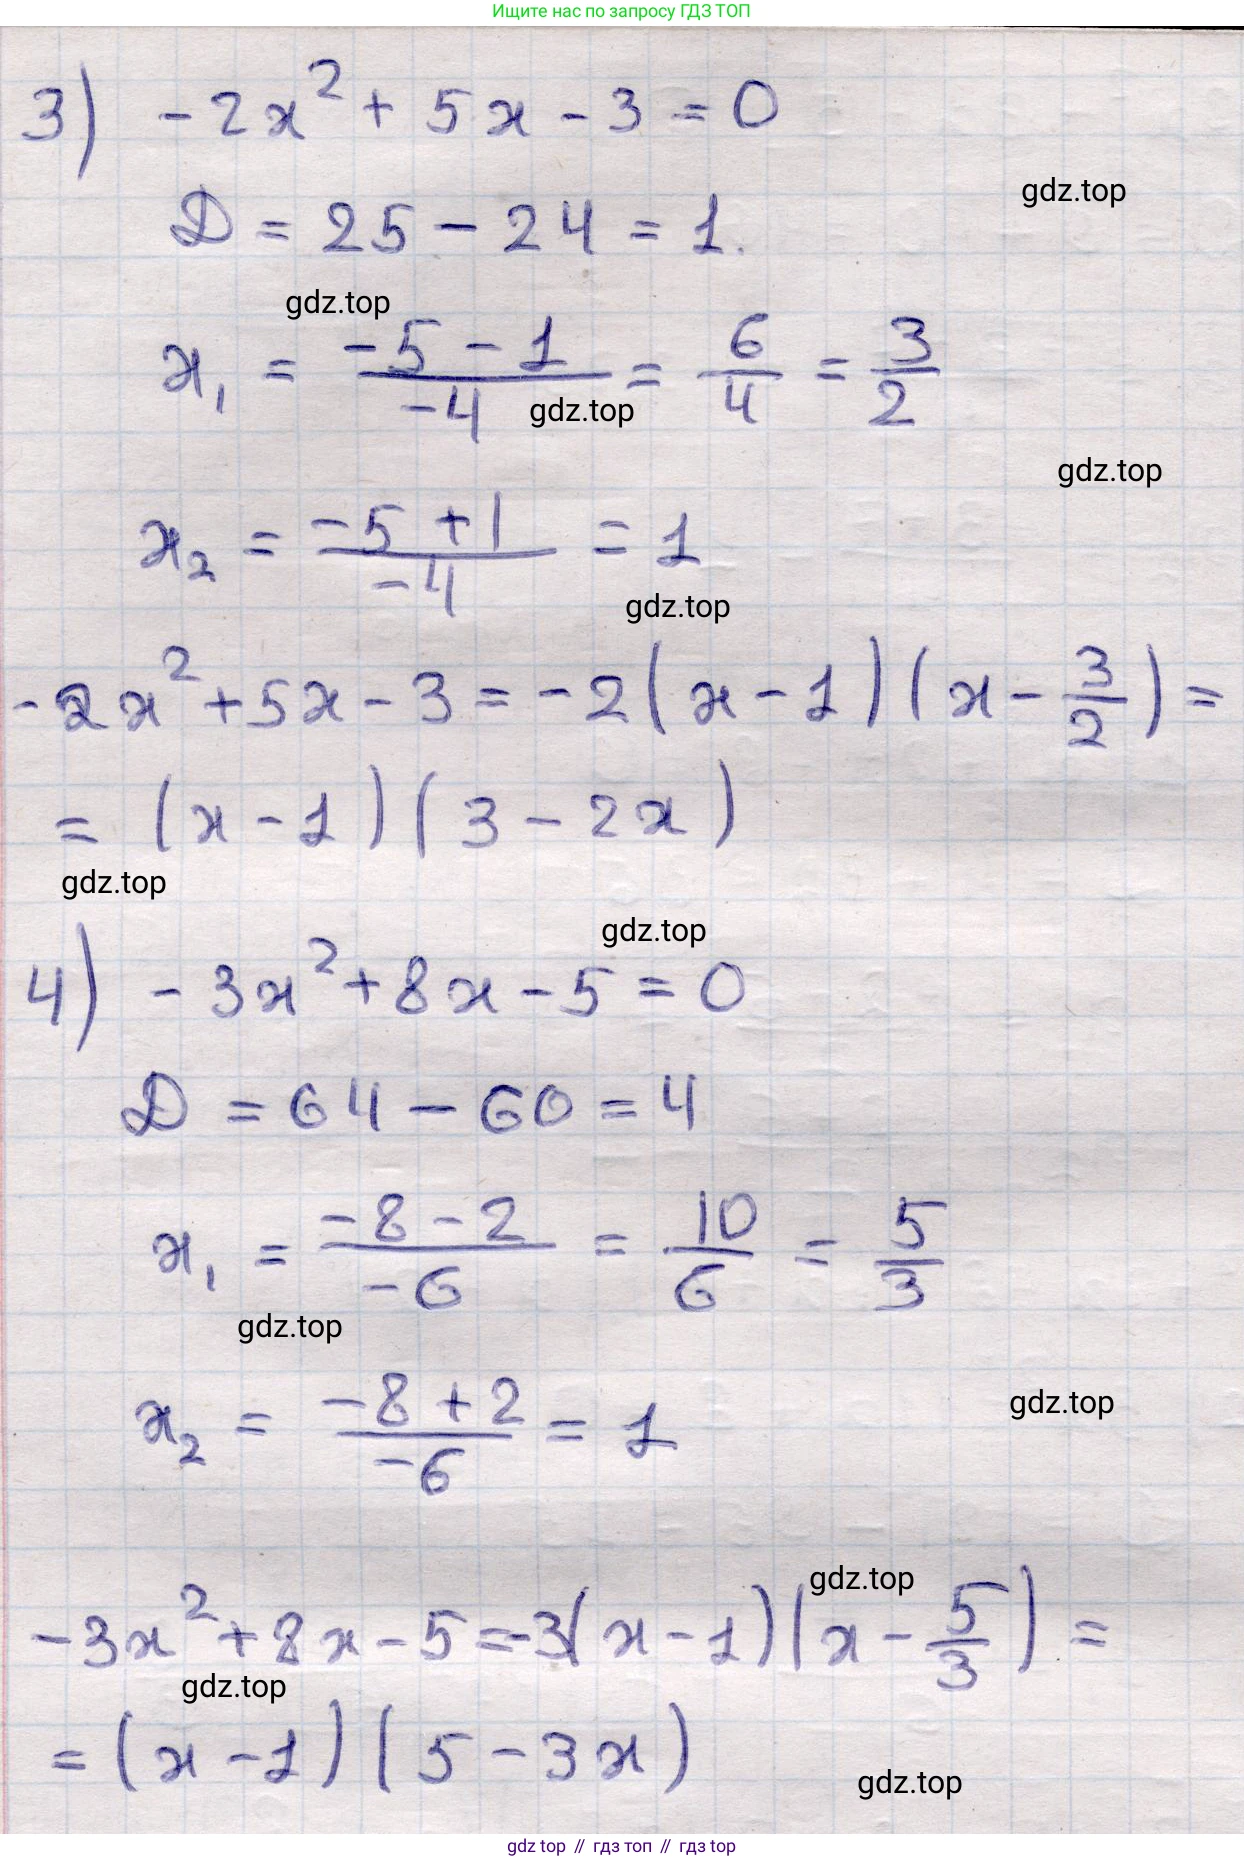 Ищите нас по запросу ГДЗ ТОП
3) -2x² + 5x - 3 = 0
gdz.top
D = 25 - 24 = 1.
gdz.top
x₁ = (-5 - 1)/(-4) = 6/4 = 3/2
gdz.top
gdz.top
x₂ = (-5 + 1)/(-4) = 1
gdz.top
-2x² + 5x - 3 = -2(x - 1)(x - 3/2) =
= (x - 1)(3 - 2x)
gdz.top
gdz.top
4) -3x² + 8x - 5 = 0
D = 64 - 60 = 4
x₁ = (-8 - 2)/(-6) = 10/6 = 5/3
gdz.top
x₂ = (-8 + 2)/(-6) = 1
gdz.top
gdz.top
-3x² + 8x - 5 = -3(x - 1)(x - 5/3) =
gdz.top
= (x - 1)(5 - 3x)
gdz.top
gdz top // гдз топ // гдз top